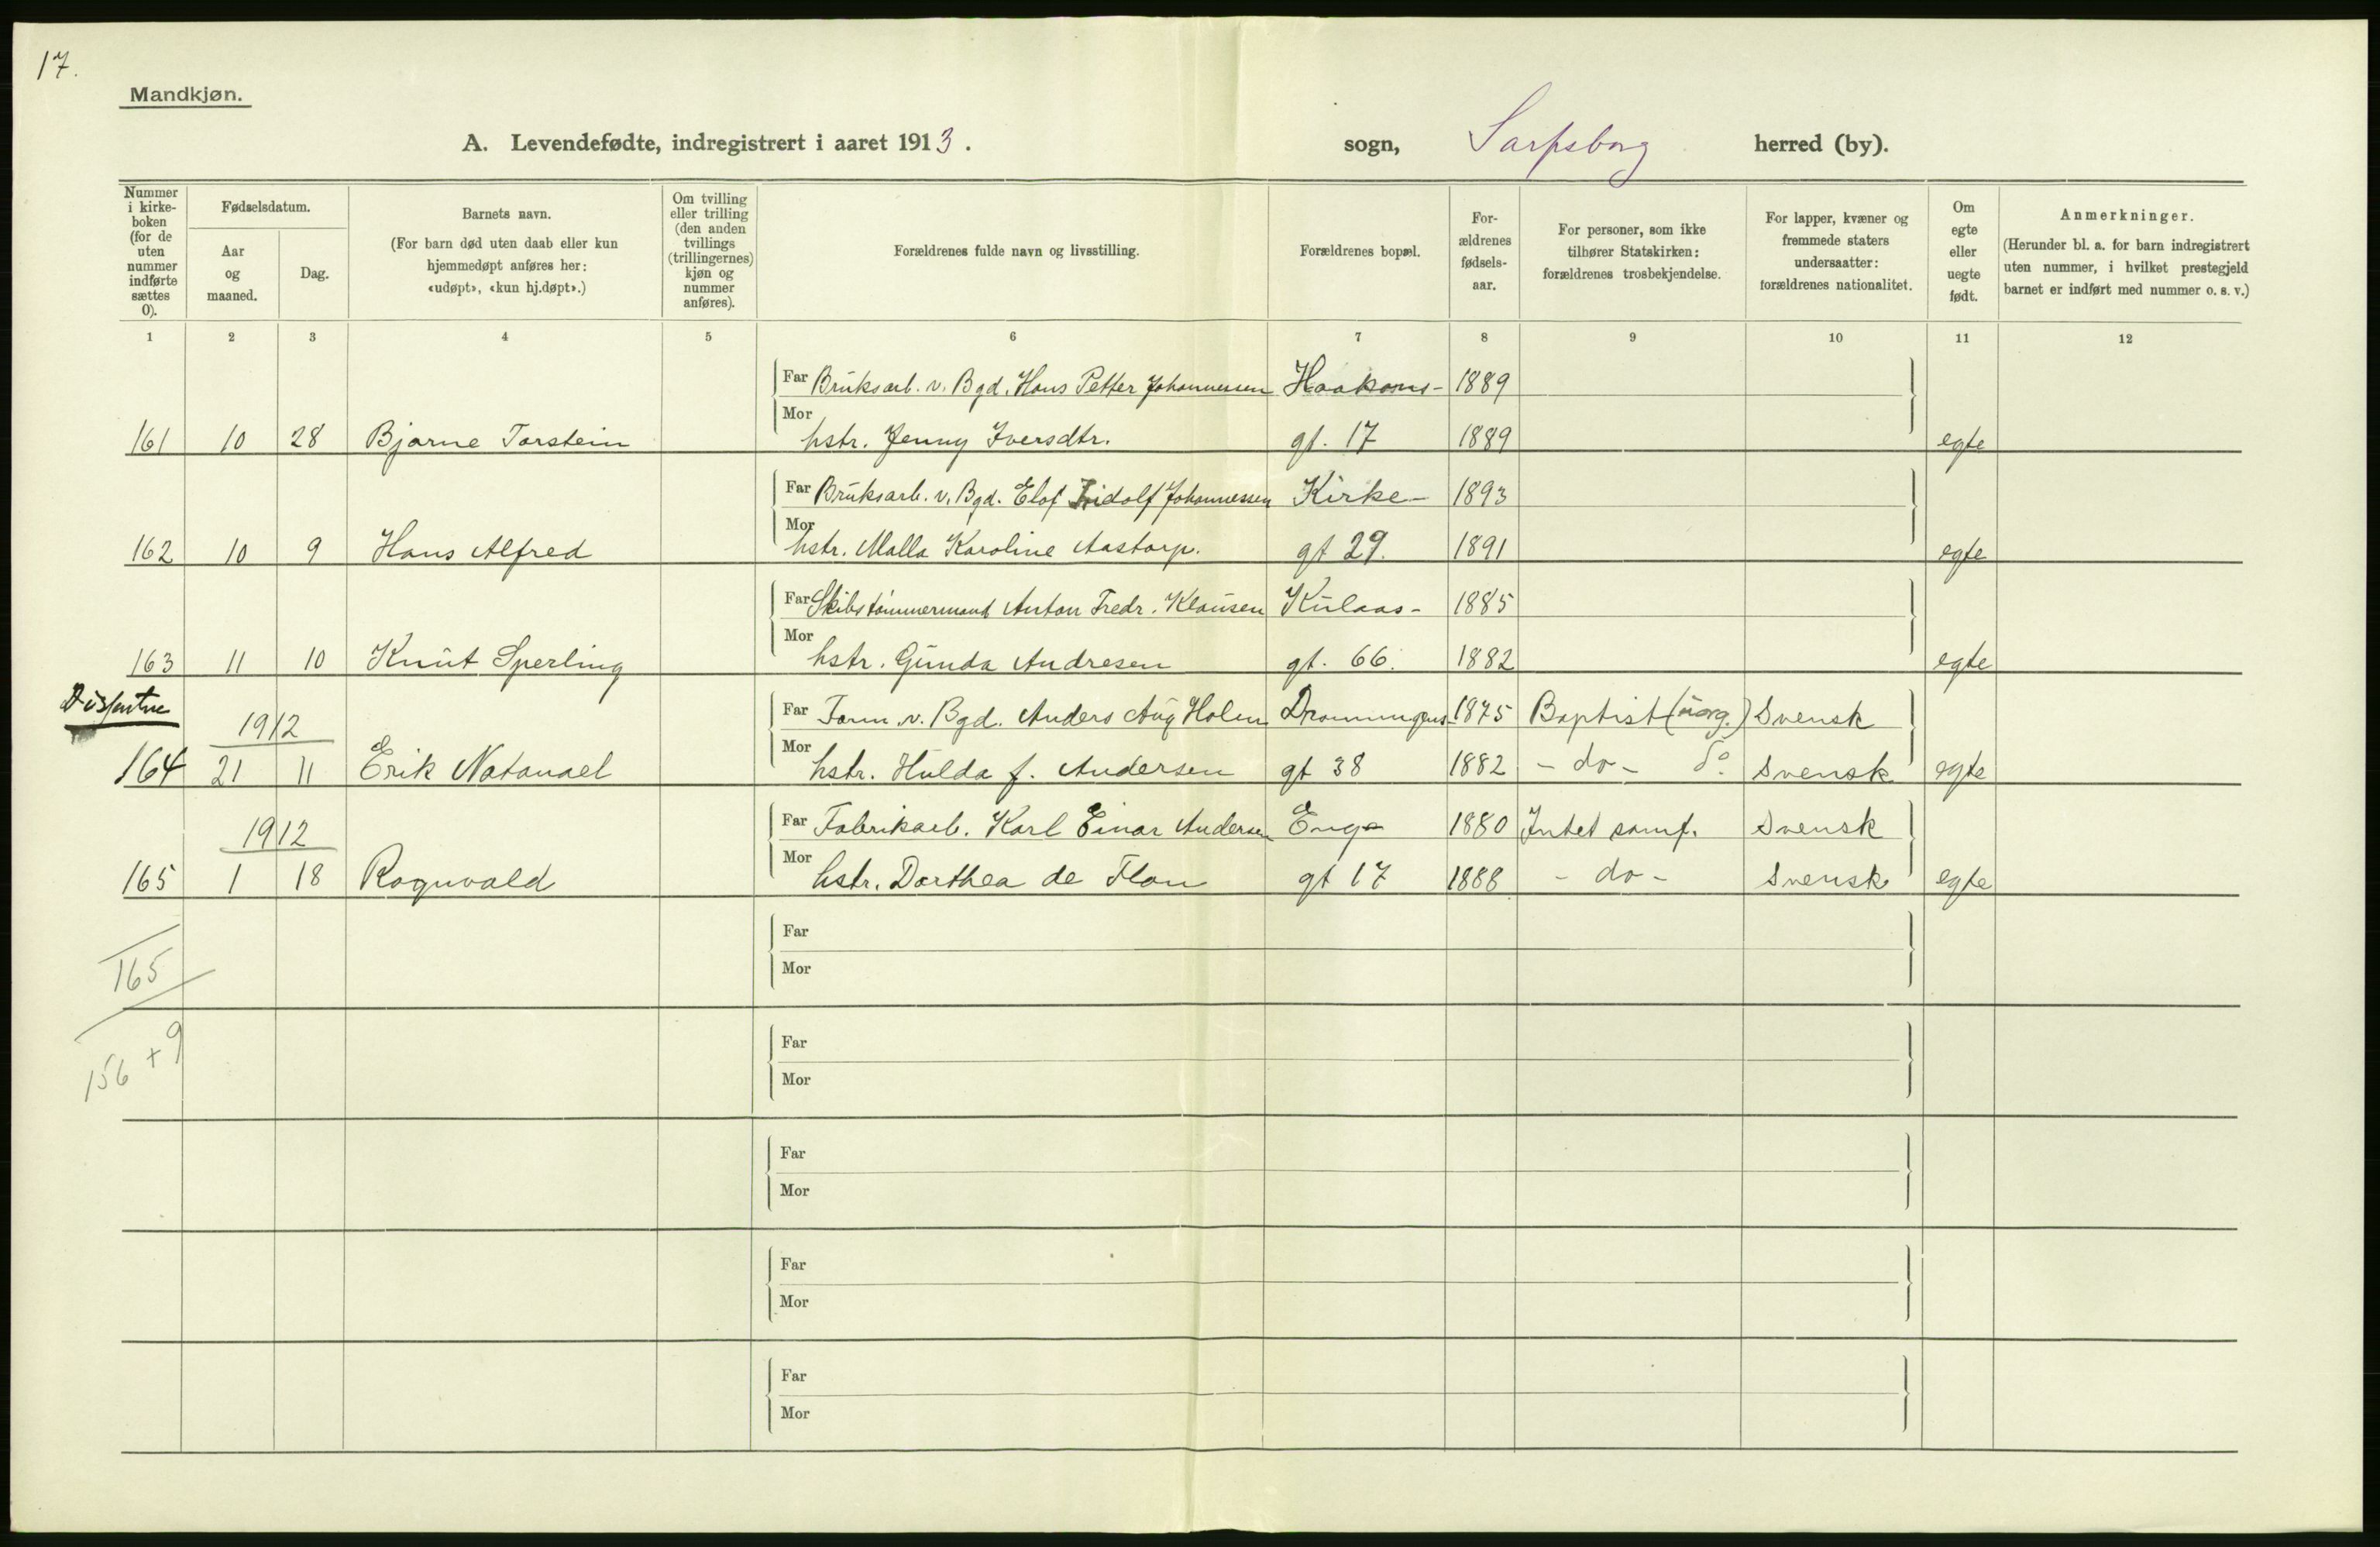 17.
Mandkjøn.
A. Levendefødte, indregistrert i aaret 1913. sogn, Sarpsborg herred (by).
Nummer i kirke-boken (for de uten nummer indførte sættes 0).
Fødselsdatum.
Aar og maaned.
Dag.
Barnets navn.
(For barn død uten daab eller kun hjemmedøpt anføres her: «udøpt», «kun hj.døpt».)
Om tvilling eller trilling (den anden tvillings (trillingernes) kjøn og nummer anføres).
Forældrenes fulde navn og livsstilling.
Forældrenes bopæl.
For-ældrenes fødsels-aar.
For personer, som ikke tilhører Statskirken: forældrenes trosbekjendelse.
For lapper, kvæner og fremmede staters undersaatter: forældrenes nationalitet.
Om egte eller uegte født.
Anmerkninger.
(Herunder bl. a. for barn indregistrert uten nummer, i hvilket prestegjeld barnet er indført med nummer o. s. v.)
1 2 3 4 5 6 7 8 9 10 11 12
Far Bruksarb. v. Bgd. Hans Petter Johannessen Haakons- 1889
161 10 28 Bjarne Torstein Mor hstr. Jenny Iversdtr. gt. 17 1889 egte
Far Bruksarb. v. Bgd. Elof Fridolf Johannessen Kirke- 1893
162 10 9 Hans Alfred Mor hstr. Malla Karoline Aastorp. gt 29. 1891 egte
Far Skibstømmermand Anton Fredr. Klausen Kulaas- 1885
163 11 10 Knut Sperling Mor hstr. Gunda Andresen gt. 66. 1882 egte
1912 Far Form. v. Bgd. Anders Aug Holm Dronningens 1875 Baptist (uorg.) Svensk
164 21 11 Erik Natanael Mor hstr. Hulda f. Andersen gt 38 1882 - do - do Svensk egte
1912 Far Fabrikarb. Karl Einar Andersen Enge 1880 Intet samf. Svensk
165 1 18 Ragnvald Mor hstr. Dorthea de Flon gt 17 1888 - do - Svensk egte
Far
165
Mor
156 + 9
Far
Mor
Far
Mor
Far
Mor
Far
Mor